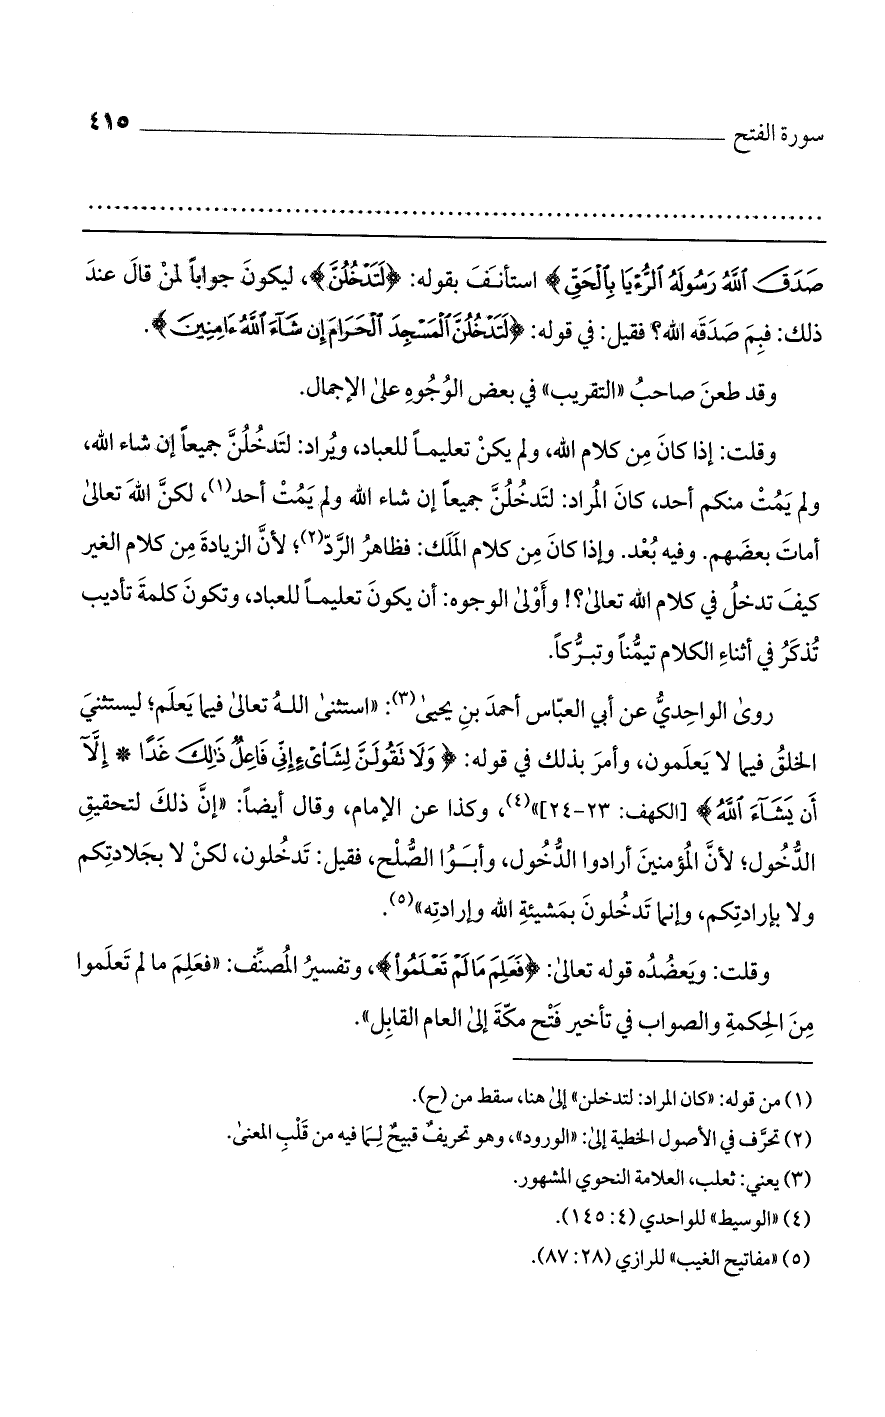 سورة الفتح ٤١٥
صَدَقَ ٱللَّهُ رَسُولَهُ ٱلرُّءْيَا بِٱلْحَقِّ﴾ استأنَفَ بقوله: ﴿لَتَدْخُلُنَّ﴾، ليكونَ جواباً لمنْ قالَ عندَ
ذلك: فبِمَ صَدَقَه الله؟ فقيل: في قوله: ﴿لَتَدْخُلُنَّ ٱلْمَسْجِدَ ٱلْحَرَامَ إِن شَآءَ ٱللَّهُ ءَامِنِينَ﴾.
وقد طعنَ صاحبُ «التقريب» في بعض الوُجُوهِ على الإجمال.
وقلت: إذا كانَ مِن كلام الله، ولم يكنْ تعليمـاً للعباد، ويُراد: لتَدخُلُنَّ جميعاً إن شاء الله،
ولم يَمُتْ منكم أحد، كانَ المُراد: لتَدخُلُنَّ جميعاً إن شاء الله ولم يَمُتْ أحد(١)، لكنَّ اللهَ تعالىٰ
أماتَ بعضَهم. وفيه بُعْد. وإذا كانَ مِن كلام المَلَك: فظاهرُ الرَّدّ(٢)؛ لأنَّ الزيادةَ مِن كلام الغير
كيفَ تدخلُ في كلام الله تعالىٰ؟! وأَوْلىٰ الوجوه: أن يكونَ تعليمـاً للعباد، وتكونَ كلمةَ تأديب
تُذكَرُ في أثناءِ الكلام تيمُّناً وتبـرُّكاً.
روىٰ الواحِديُّ عن أبي العبّاس أحمدَ بنِ يحيىٰ(٣): «استثنىٰ اللـهُ تعالىٰ فيما يَعلَم؛ ليستثنيَ
الخلقُ فيما لا يَعلَمون، وأمرَ بذلك في قوله: ﴿وَلَا نَقُولَنَّ لِشَاْىْءٍ إِنِّى فَاعِلٌ ذَٰلِكَ غَدًا * إِلَّآ
أَن يَشَآءَ ٱللَّهُ﴾ [الكهف: ٢٣-٢٤]»(٤)، وكذا عن الإمام، وقال أيضاً: «إنَّ ذلكَ لتحقيقِ
الدُّخُول؛ لأنَّ المُؤمنينَ أرادوا الدُّخُول، وأبـَوُا الصُّلْح، فقيل: تَدخُلون، لكنْ لا بجَلادتِكم
ولا بإرادتِكم، وإنما تَدخُلونَ بمَشيئةِ الله وإرادتِه»(٥).
وقلت: ويَعضُدُه قوله تعالىٰ: ﴿فَعَلِمَ مَا لَمْ تَعْلَمُوا۟﴾، وتفسيرُ المُصنِّف: «فعَلِمَ ما لم تَعلَموا
مِنَ الحِكمةِ والصواب في تأخير فَتْح مكّةَ إلىٰ العام القابِل».
(١) من قوله: «كان المراد: لتدخلن» إلىٰ هنا، سقط من (ح).
(٢) تحرَّف في الأصول الخطية إلىٰ: «الورود»، وهو تحريفٌ قبيحٌ لِـمَا فيه من قَلْبِ المعنىٰ.
(٣) يعني: ثعلب، العلامة النحوي المشهور.
(٤) «الوسيط» للواحدي (٤: ١٤٥).
(٥) «مفاتيح الغيب» للرازي (٢٨: ٨٧).